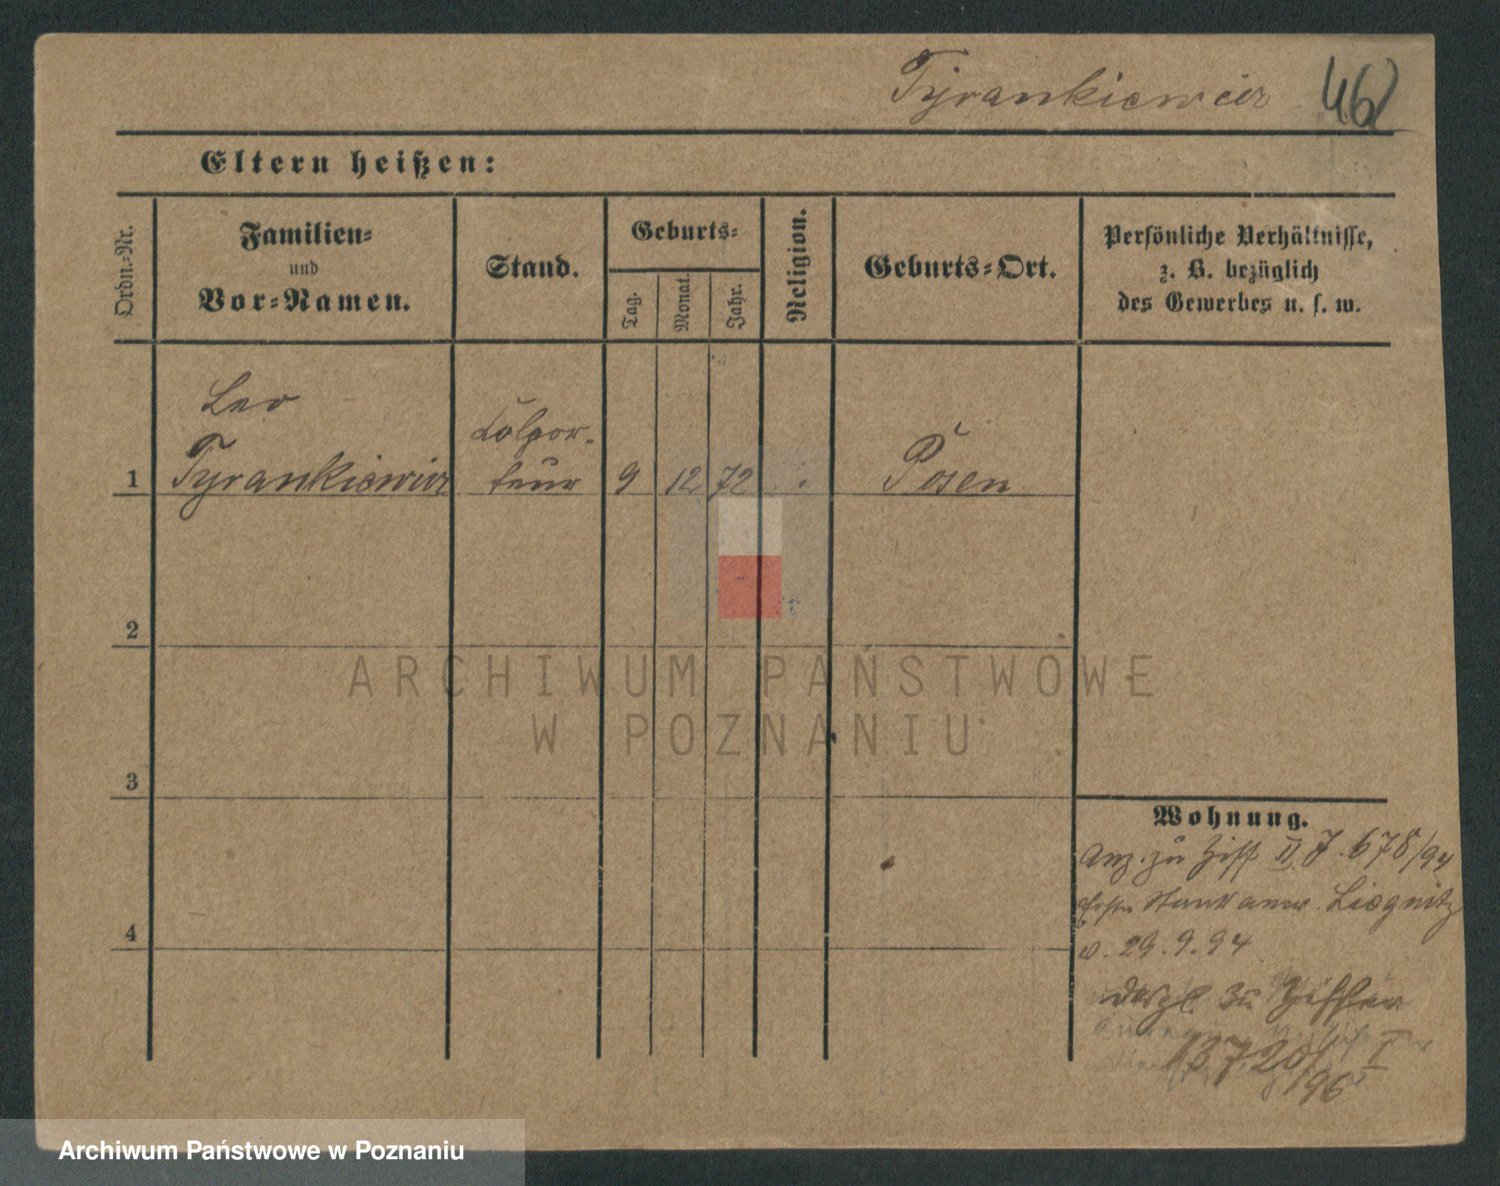 Tyrankiewicz 462
Eltern heißen:
Ordn.-Nr.
Familien-
und
Vor-Namen.
Stand.
Geburts-
Tag.
Monat.
Jahr.
Religion.
Geburts-Ort.
Persönliche Verhältnisse,
z. B. bezüglich
des Gewerbes u. s. w.
Leo
Tyrankiewicz
Colpor-
teur
1
9 12 72
Posen
2
3
4
ARCHIWUM PAŃSTWOWE
W POZNANIU
Wohnung.
Anz. zu Ziff. II J. 678/94
Erster Staatsanw. Liegnitz
v. 29.9.94
desgl. zu Ziffer
I
/96
Archiwum Państwowe w Poznaniu